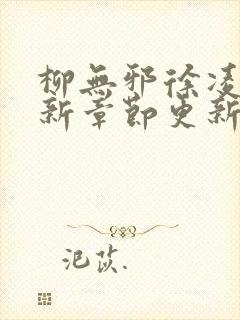 柳無邪徐凌
新章節更新
汜莰.